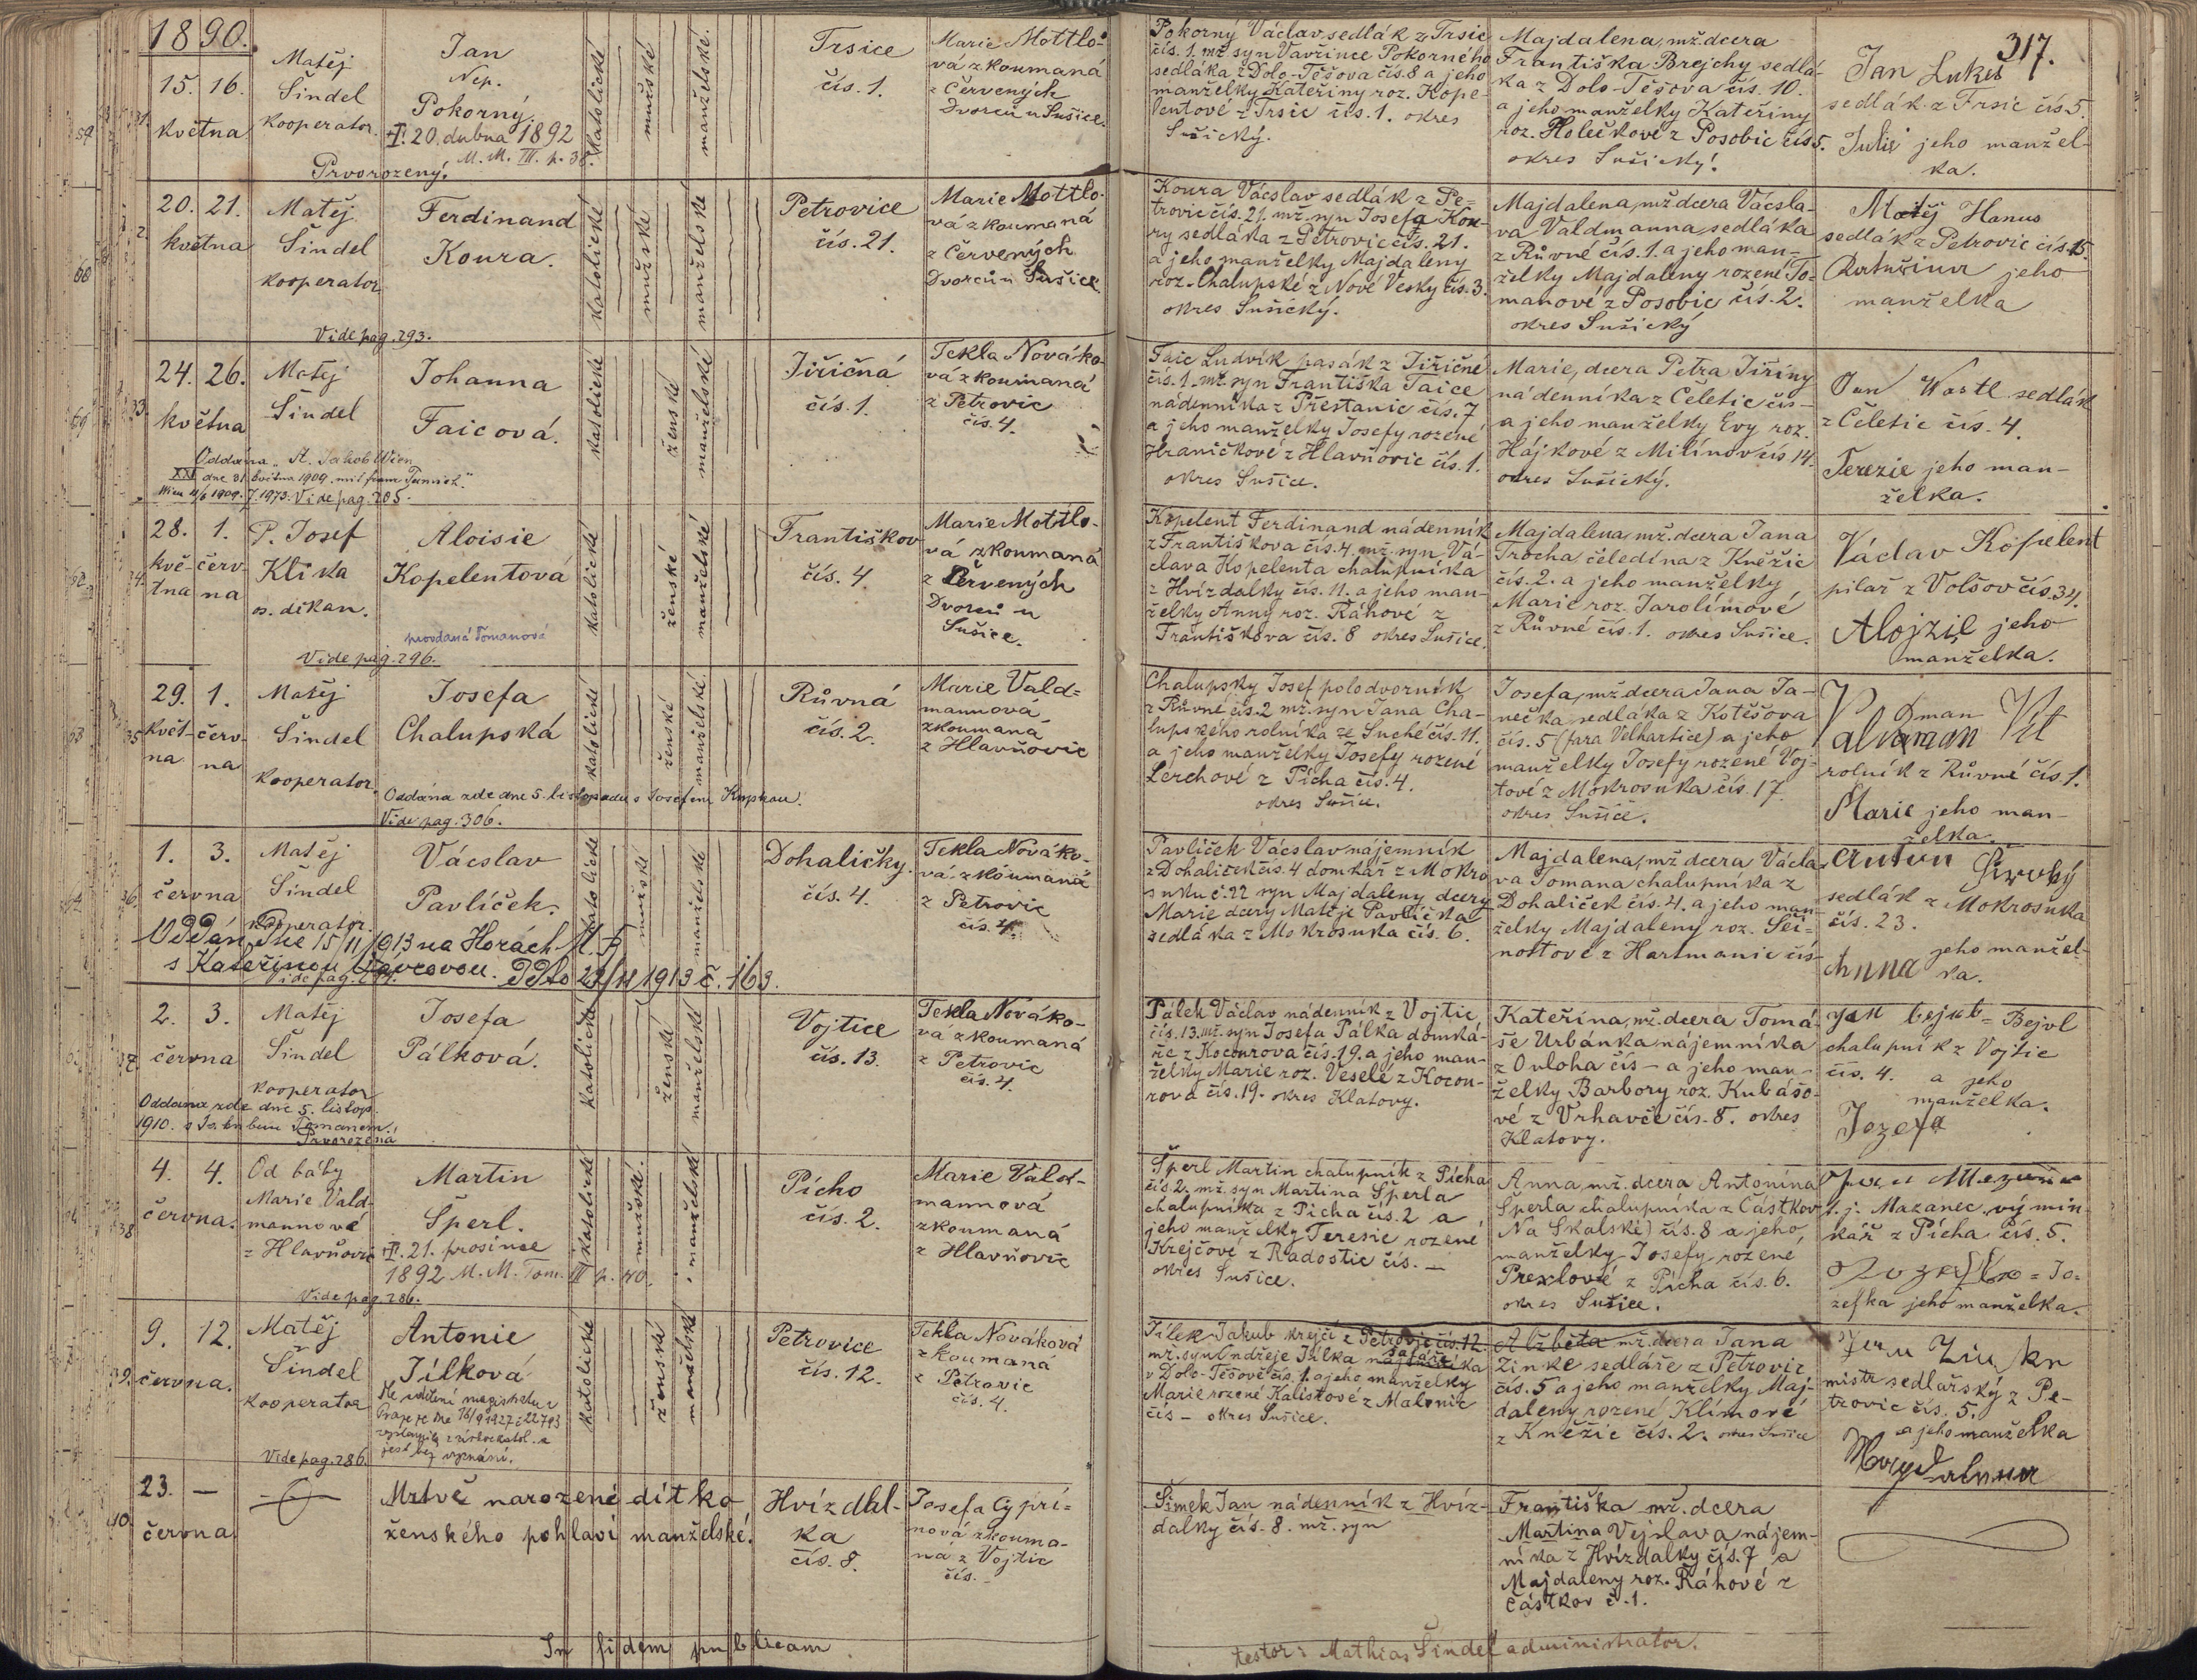 1890.
15. 16.
května
Matěj
Šindel
kooperator.
Jan
Nep.
Pokorný.
20. dubna 1892
M. M. III. p. 38.
Prvorozený.
katolické
mužské
manželské.
Trsice
čís. 1.
Marie Mottlo-
vá zkoumaná
z Červených
Dvorců u Sušice.
Pokorný Václav sedlák z Trsic
čís. 1. mž. syn Vavřince Pokorného
sedláka z Dolo-Těšova čís. 8 a jeho
manželky Kateřiny roz. Kope-
lentové z Trsic čís. 1. okres
Sušický.
Majdalena, mž. dcera
Františka Brejchy sedlá-
ka z Dolo-Těšova čís. 10.
a jeho manželky Kateřiny
roz. Holečkové z Posobic čís 5.
okres Sušický.
317.
Jan Lukeš
sedlák z Trsic čís. 5.
Julie jeho manžel-
ka.
20. 21.
května
Matěj
Šindel
kooperator
Ferdinand
Koura.
Vide pag. 293.
katolické
mužské
manželské
Petrovice
čís. 21.
Marie Mottlo-
vá zkoumaná
z Červených
Dvorců u Sušice.
Koura Václav sedlák z Pe-
trovic čís. 21. mž. syn Josefa Kou-
ry sedláka z Petrovic čís. 21.
a jeho manželky Majdaleny
roz. Chalupské z Nové Vesky čís. 3.
okres Sušický.
Majdalena, mž. dcera Vácsla-
va Valdmanna, sedláka
z Růvné čís. 1. a jeho man-
želky Majdaleny rozené To-
manové z Posobic čís. 2.
okres Sušický
Matěj Hanus
sedlák z Petrovic čís. 15.
jeho
manželka
24. 26.
května
Matěj
Šindel
Johanna
Faicová.
Oddána „St. Jakob Wien
XXI dne 31 května 1909
Wien 11/6 1909. Vide pag. 205.
katolické
ženské
manželské
Jiřičná
čís. 1.
Tekla Nováko-
vá zkoumaná
z Petrovic
čís. 4.
Faic Ludvík pasák z Jiřičné
čís. 1. mž. syn Františka Faice
nádenníka z Přestanic čís. 7
a jeho manželky Josefy rozené
Hraničkové z Hlavňovic čís. 1.
okres Sušice.
Marie, dcera Petra Jiřiny
nádenníka z Čeletic čís –
a jeho manželky Evy roz.
Hájkové z Milínov čís 14.
okres Sušický.
Jan Wastl sedlák
z Čeletic čís. 4.
Terezie jeho man-
želka.
28. 1.
kvě- červ-
tna na
P. Josef
Klika
os. děkan.
Aloisie
Kopelentová
provdaná Tomanová
Vide pag. 296.
katolické
ženské
manželské
Františkov
čís. 4.
Marie Mottlo-
vá zkoumaná
z Červených
Dvorců u
Sušice.
Kopelent Ferdinand nádenník
z Františkova čís. 4. mž. syn Vá-
clava Kopelenta chalupníka
z Hvízdalky čís. 11. a jeho man-
želky Anny roz. Ráhové z
Františkova čís. 8 okres Sušice.
Majdalena mž. dcera Jana
Trocha čeledína z Kněžic
čís. 2. a jeho manželky
Marie roz. Jarolímové
z Růvné čís. 1. okres Sušice.
Václav Kopelent
pilař z Volšov čís. 34.
Alojzie jeho
manželka.
29. 1.
květ- červ-
na na
Matěj
Šindel
kooperator.
Josefa
Chalupská
Oddána zde dne 5. listopadu s Josefem
Vide pag. 306.
katolické
ženské
manželské.
Růvná
čís. 2.
Marie Vald-
mannová
zkoumaná
z Hlavňovic
Chalupsky Josef polodvorník
z Růvné čís. 2 mž. syn Jana Cha-
lupského rolníka ze Suché čís. 11.
a jeho manželky Josefy rozené
Lerchové z Picha čís. 4.
okres Sušice.
Josefa, mž. dcera Jana Ja-
nečka sedláka z Kotěšova
čís. 5 (fara Velhartice) a jeho
manželky Josefy rozené Voj-
tové z Mokrosuka čís. 17.
okres Sušice.
Valdman Vít
rolník z Růvné čís. 1.
Marie jeho man-
želka.
1. 3.
června
Matěj
Šindel
kooperator.
Vácslav
Pavlíček.
Oddán dne 15/11 1913 na Horách M. B.
s Kateřinou
Vide pag.
1913 č. 163.
katolické
mužské
manželské
Dohaličky.
čís. 4.
Tekla Nováko-
vá zkoumaná
z Petrovic
čís. 4.
Pavlíček Vácslav nájemník
z Dohaliček čís. 4 domkář z Mokro
suku č. 22 syn Majdaleny dcery
Marie dcery Matěje Pavlíčka
sedláka z Mokrosuka čís. 6.
Majdalena, mž. dcera Václa-
va Tomana chalupníka z
Dohaliček čís. 4. a jeho man-
želky Majdaleny roz. Sei-
nostové z Hartmanic čís
Anton Široký
sedlák z Mokrosuka
čís. 23.
Anna jeho manžel-
ka.
2. 3.
června
Matěj
Šindel
kooperator
Josefa
Pálková.
Oddána zde dne 5. listop.
1910. s Tomanem.
Prvorozená
katolické
ženské
manželské
Vojtice
čís. 13.
Tekla Nováko-
vá zkoumaná
z Petrovic
čís. 4.
Pálek Václav nádenník z Vojtic
čís. 13. mž. syn Josefa Pálka domká-
ře z Kocourova čís. 19. a jeho man-
želky Marie roz. Veselé z Kocou-
rova čís. 19. okres Klatovy.
Kateřina, mž. dcera Tomá-
še Urbánka nájemníka
z Ouloha čís – a jeho man-
želky Barbory roz. Kubášo-
vé z Vrhavče čís. 8. okres
Klatovy.
Bejvl
chalupník z Vojtic
čís. 4. a jeho
manželka.
Jozefa
4. 4.
června.
Od báby
Marie Vald-
mannové
z Hlavňovic
Martin
Šperl.
21. prosince
1892 M. M. Tom. III p. 40.
Vide pag. 286.
katolické
mužské.
manželské
Picho
čís. 2.
Marie Vald-
mannová
zkoumaná
z Hlavňovic
Šperl Martin chalupník z Picha
čís. 2. mž. syn Martina Šperla
chalupníka z Picha čís. 2 a
jeho manželky Teresie rozené
Krejčové z Radostic čís. —
okres Sušice.
Anna, mž. dcera Antonína
Šperla chalupníka z Částkov
Na Skalské) čís. 8 a jeho
manželky Josefy rozené
Prexlové z Picha čís. 6.
okres Sušice.
t. j. Mazanec, výmin-
kář z Picha čís. 5.
= Jo-
zefka jeho manželka.
9. 12.
června.
Matěj
Šindel
kooperator
Antonie
Jílková
Dle sdělení magistrátu v
Praze ze dne 16/9 1927 č 22793
vystoupila z církve katol. a
jest bez vyznání.
Vide pag. 286.
katolické
ženské
manželské
Petrovice
čís. 12.
Tekla Nováková
zkoumaná
z Petrovic
čís. 4.
Jílek Jakub krejčí z Petrovic čís. 12.
mž. syn Ondřeje Jílka nájemníka
v Dolo-Těšově čís. 1. a jeho manželky
Marie rozené Kalistové z Malonic
čís – okres Sušice.
Alžběta mž. dcera Jana
Zinke sedláře z Petrovic
čís. 5 a jeho manželky Maj-
daleny rozené Klímové
z Kněžic čís. 2. okres Sušice
mistr sedlařský z Pe-
trovic čís. 5.
a jeho manželka
23. —
června
Mrtvě narozené dítko
ženského pohlaví manželské.
Hvízdal-
ka
čís. 8.
Josefa Cypri-
nová zkouma-
ná z Vojtic
čís. -
Šimek Jan nádenník z Hvíz-
dalky čís. 8. mž. syn
Františka mž. dcera
Martina Vejslava nájem-
níka z Hvízdalky čís. 7 a
Majdaleny roz. Ráhové z
Částkov č. 1.
In fidem publicam
testor: Mathias Šindel administrator.